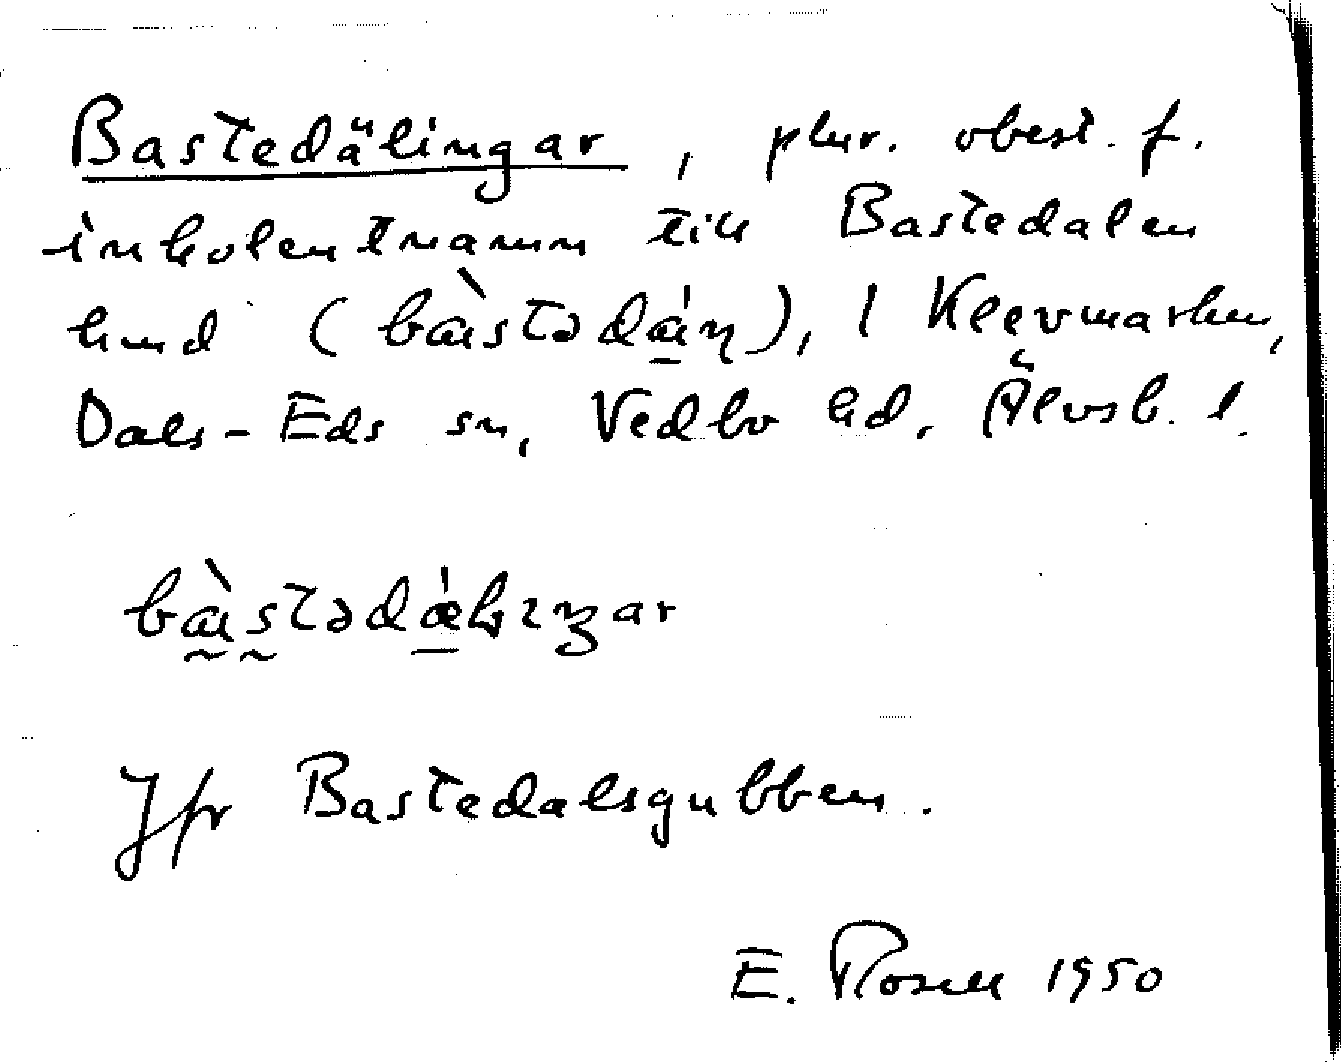 Bastedälingar, plur. obest. f.
inbolentnamn till Bastedalen
lund (bàstədán), i Kleevmarken,
Dals-Eds sn, Vedbo hd, Älvsb. l.
bàstədǽlıŋar
Jfr Bastedalsgubben.
E. Rosell 1950